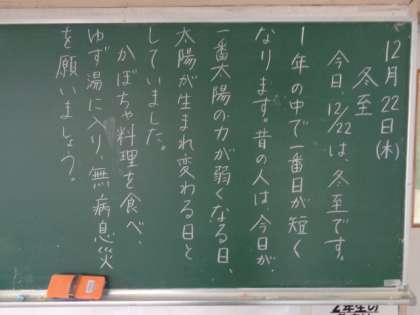 12月22日(木)
冬至
今日、12/22は、冬至です。
1年の中で一番日が短く
なります。昔の人は、今日が、
一番太陽の力が弱くなる日、
太陽が生まれ変わる日と
していました。
かぼちゃ料理を食べ、
ゆず湯に入り、無病息災
を願いましょう。
2年生の